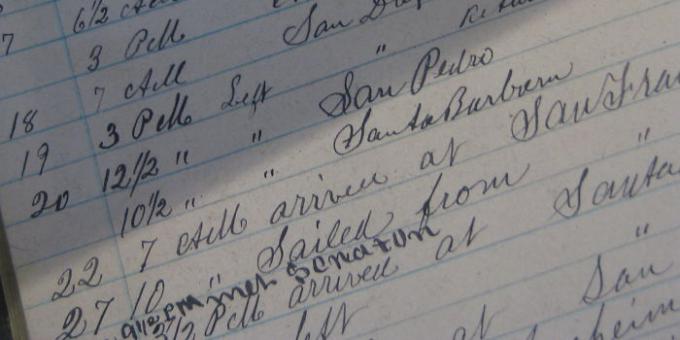 6 1/2 AM
7 3 PM San Die
7 AM " Re
18 3 PM Left San Pedro
19 12 1/2 " " Santa Barbera
20 10 1/2 " "
7 AM arrived at San Fran
22 10 " Sailed from "
9 1/2 PM met Senator
27 2 1/2 PM arrived at Santa
left "
at San